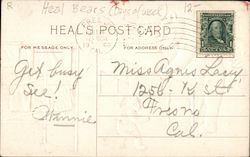 R Heal Bears (Dressed) 12-
HEAL'S POST CARD
FOR MESSAGE ONLY. FOR ADDRESS ONLY.
Get busy
See!
Winnie
Miss Agnes Lacy
1256 - K St
Fresno
Cal.